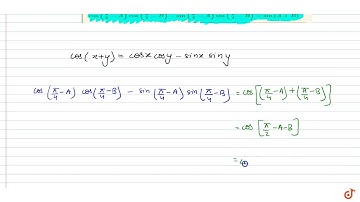 cos(x+y) = cosx cosy − sinx siny
cos(π/4−A) cos(π/4−B) − sin(π/4−A) sin(π/4−B) = cos[(π/4−A)+(π/4−B)]
= cos[π/2−A−B]
=